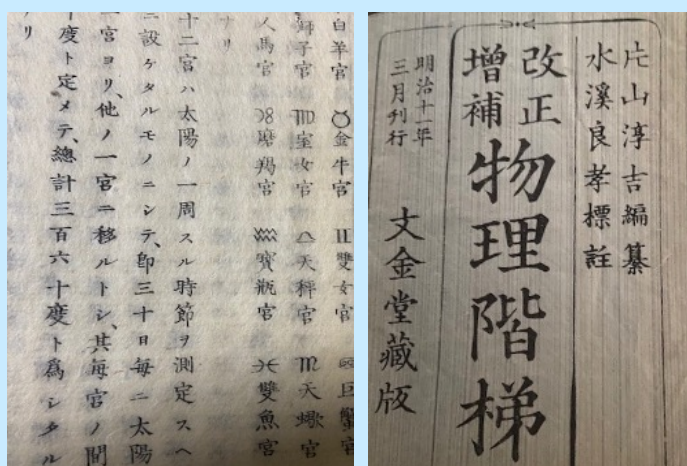 片山淳吉編纂
水溪良孝標註
改正
增補
物理階梯
明治十一年
三月刊行
文金堂藏版
白羊宮 ♉金牛宮 ♊雙女宮 ♋巨蟹宮
獅子宮 ♍室女宮 ♎天秤宮 ♏天蠍宮
人馬宮 ♑磨羯宮 ♒寶瓶宮 ♓雙魚宮
ナリ
十二宮ハ太陽ノ一周スル時節ヲ測定スヘ
ニ設ケタルモノニシテ、卽三十日每ニ太陽
一宮ヨリ、他ノ一宮ニ移ルトシ、其每宮ノ間
十度ト定メテ、總計三百六十度ト爲シタル
リ